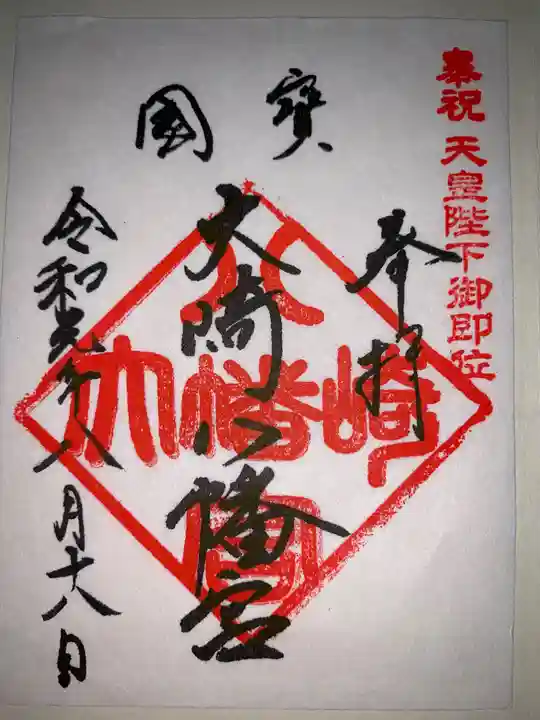 奉祝 天皇陛下御即位
奉拝
國寳
大崎八幡宮
令和元年八月十八日
大崎八幡宮